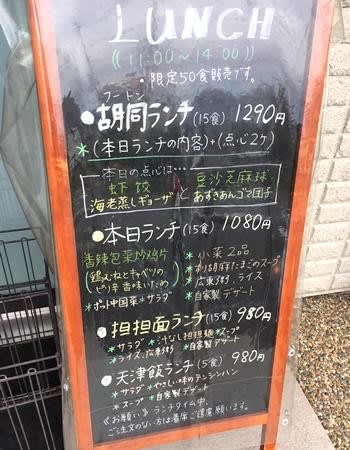 LUNCH
《11:00〜14:00》
・限定50食販売です。
フートン
●胡同ランチ(15食) 1290円
*(本日ランチの内容)+(点心2ケ)
本日の点心は…
虾饺 豆沙芝麻球
海老蒸しギョーザ と あずきあんゴマ団子
●本日ランチ(15食) 1080円
香辣包菜炒鸡片
(鶏むねとキャベツの
ピリ辛香味いため)
*ポット中国茶*サラダ
*小菜2品
*胡麻たまごのスープ
*広東粥、ライス
*自家製デザート
●担担面ランチ(15食) 980円
*サラダ *汁なし担担麺 *スープ
*ライス、広東粥 *自家製デザート
●天津飯ランチ(5食) 980円
*サラダ *やさしい味のテンシンハン
*スープ *自家製デザート
《お願い》ランチタイム中、
ご注文のない方は着席ご遠慮願います。